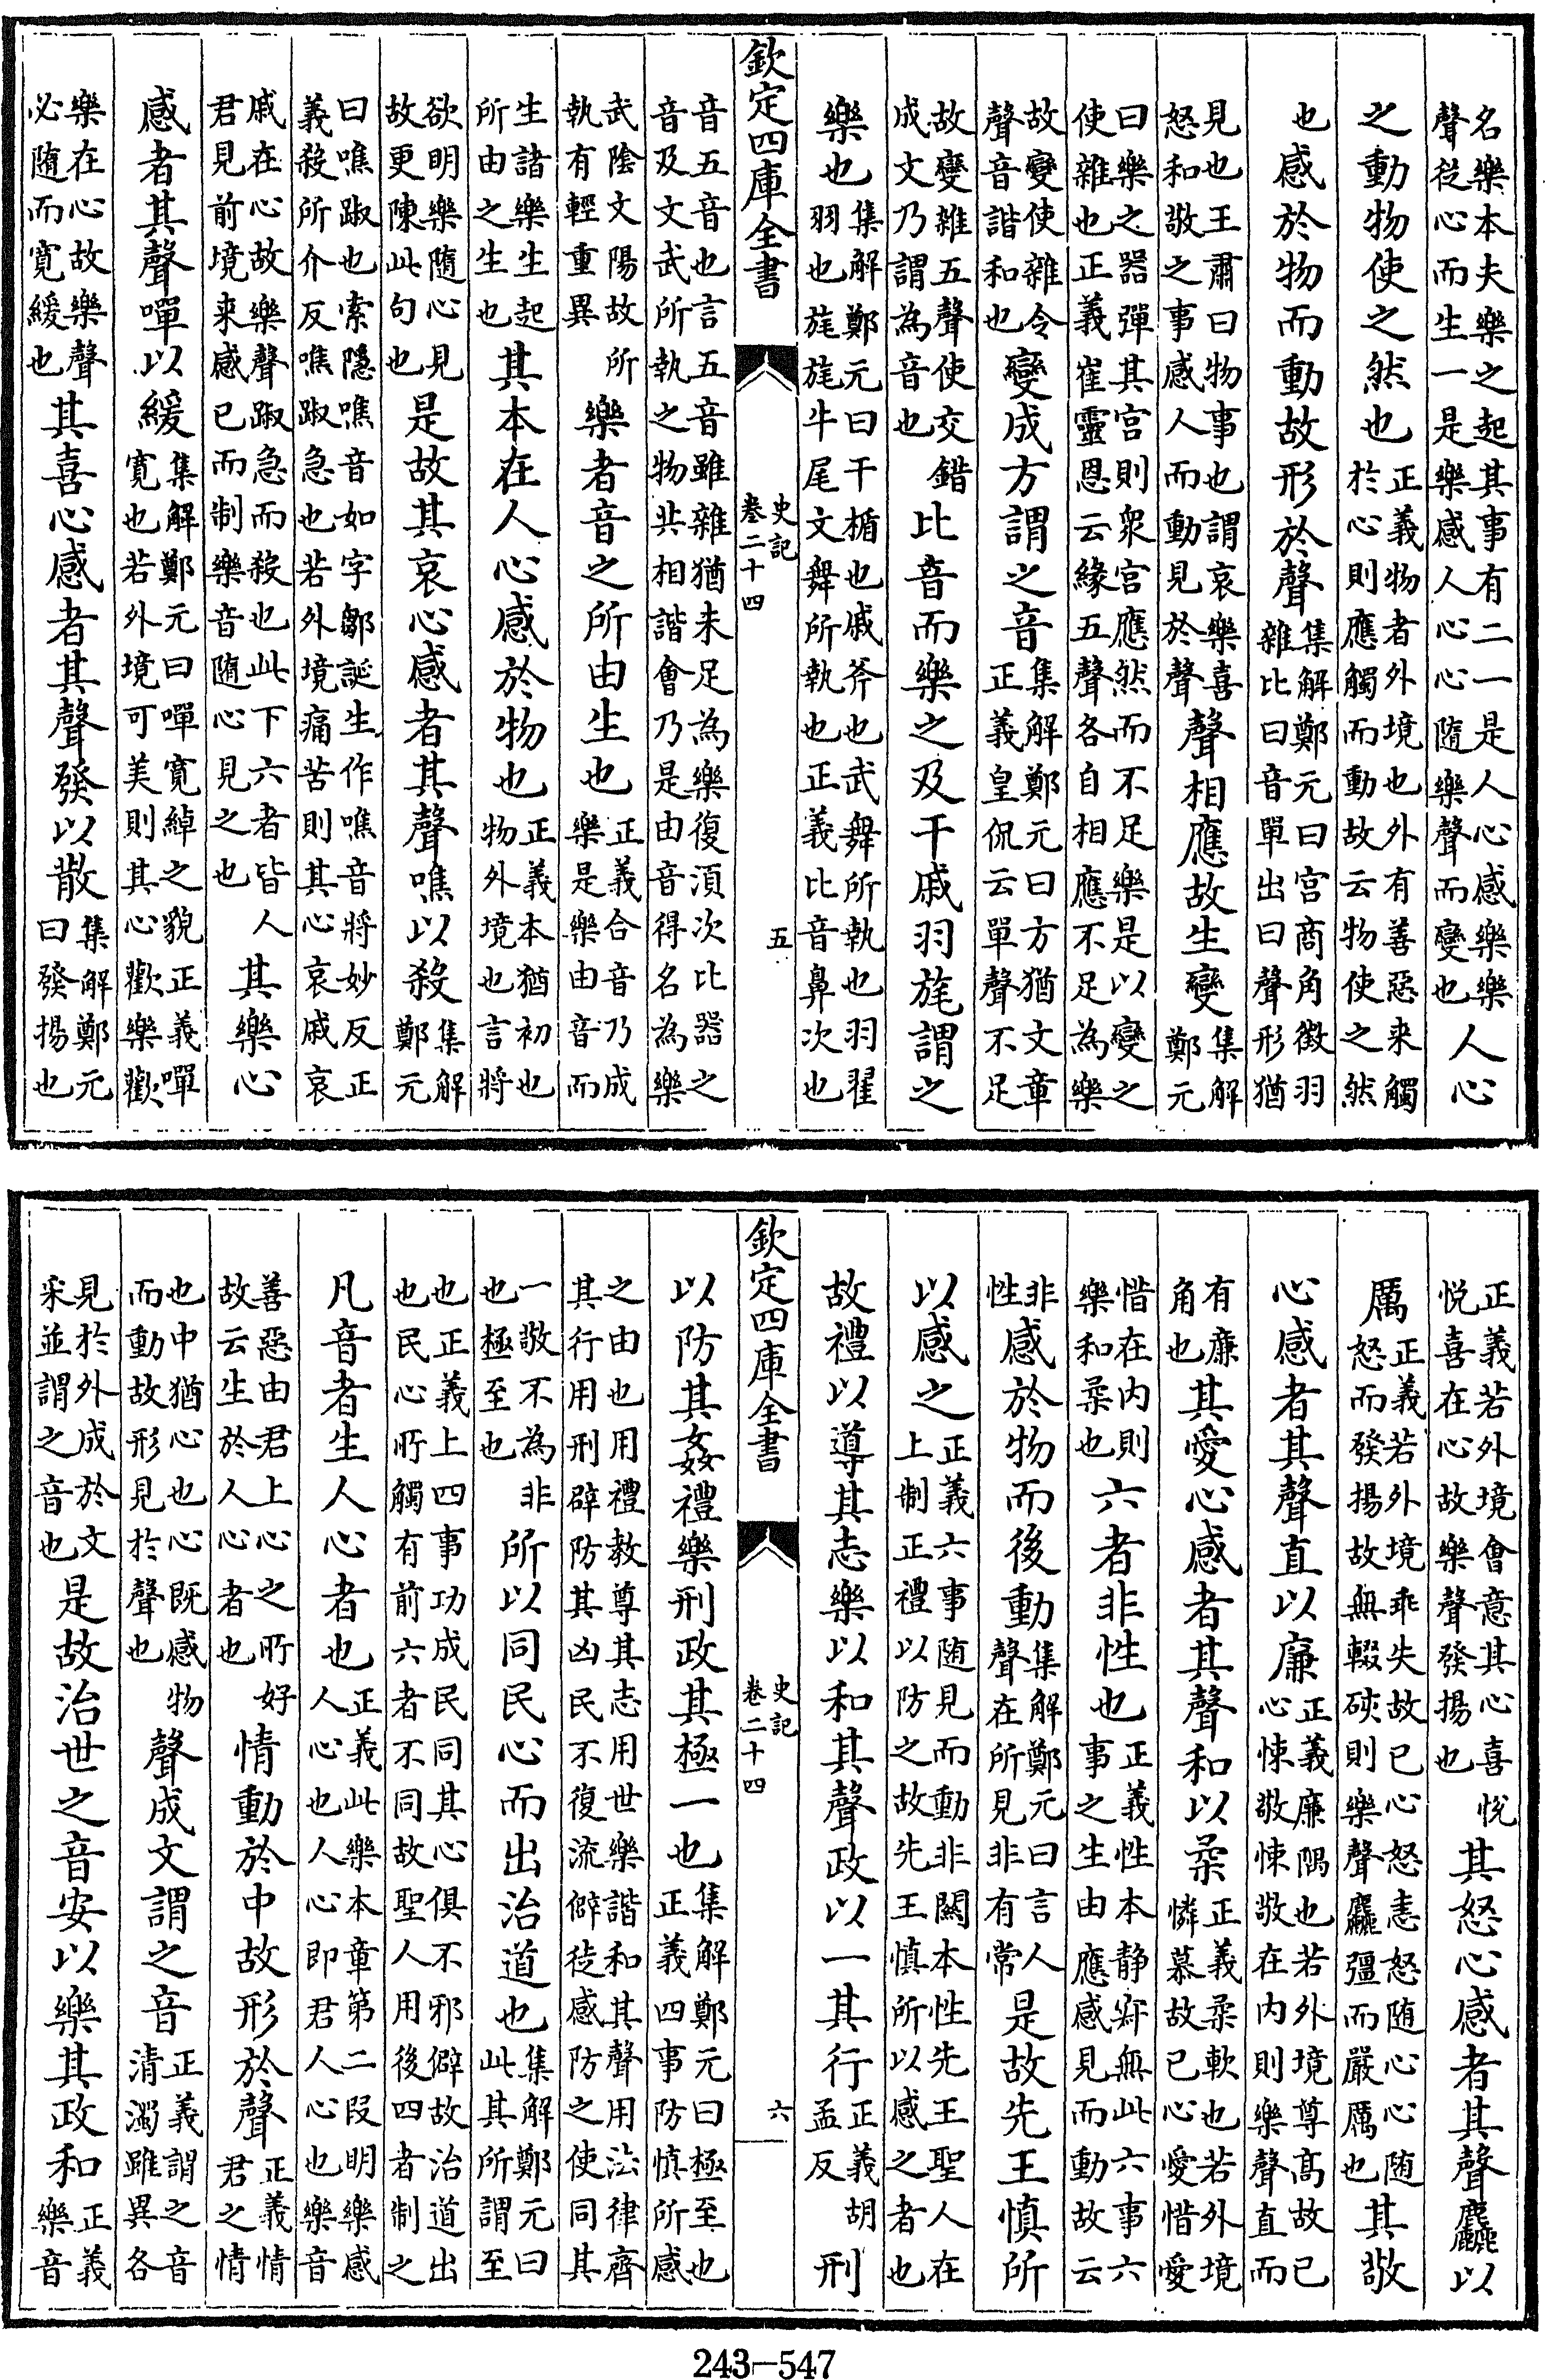 名樂本夫樂之起其事有二一是人心感樂樂聲從心而生一是樂感人心心隨樂聲而變也人心
之動物使之然也正義物者外境也外有善惡来觸於心則應觸而動故云物使之然
也感於物而動故形於聲集解鄭元曰宫商角徵羽雜比曰音單出曰聲形猶
見也王肅曰物事也謂哀樂喜怒和敬之事感人而動見於聲聲相應故生變集解鄭元
曰樂之器彈其宫則衆宫應然而不足樂是以變之使雜也正義崔靈恩云緣五聲各自相應不足為樂
故變使雜令聲音諧和也變成方謂之音集解鄭元曰方猶文章正義皇侃云單聲不足
故變雜五聲使交錯成文乃謂為音也比音而樂之及干戚羽旄謂之
樂也集解鄭元曰干楯也戚斧也武舞所執也羽翟羽也旄旄牛尾文舞所執也正義比音鼻次也
欽定四庫全書 史記卷二十四 五
音五音也言五音雖雜猶未足為樂復須次比器之音及文武所執之物共相諧會乃是由音得名為樂
武陰文陽故所執有輕重異樂者音之所由生也正義合音乃成樂是樂由音而
生諸樂生起所由之生生也其本在人心感於物也正義本猶初也物外境也言將
欲明樂隨心見故更陳此句也是故其哀心感者其聲噍以殺集解鄭元
曰噍踧也索隱噍音如字鄒誕生作噍音將妙反正義殺所介反噍踧急也若外境痛苦則其心哀戚哀
戚在心故樂聲踧急而殺也此下六者皆人君見前境来感已而制樂音隨心見之也其樂心
感者其聲嘽以緩集解鄭元曰嘽寛綽之貌正義嘽寛也若外境可美則其心歡樂歡
樂在心故樂聲必隨而寛緩也其喜心感者其聲發以散集解鄭元曰發揚也
正義若外境會意其心喜悅悅喜在心故樂聲發揚也其怒心感者其聲麤以
厲正義若外境乖失故已心怒恚怒随心心随怒而發揚故無輟硤則樂聲麤彊而嚴厲也其敬
心感者其聲直以廉正義廉隅也若外境尊高故已心悚敬悚敬在内則樂聲直而
有廉角也其愛心感者其聲和以柔正義柔軟也若外境憐慕故已心愛惜愛
惜在内則樂和柔也六者非性也正義性本静寂無此六事六事之生由應感見而動故云
非性感於物而後動集解鄭元曰言人聲在所見非有常是故先王慎所
以感之正義六事随見而動非關本性先王聖人在上制正禮以防之故先王慎所以感之者也
故禮以導其志樂以和其聲政以一其行正義胡孟反刑
欽定四庫全書 史記卷二十四 六
以防其姦禮樂刑政其極一也集解鄭元曰極至也正義四事防慎所感
之由也用禮教尊其志用世樂諧和其聲用法律齊其行用刑辟防其凶民不復流僻徒感防之使同其
一敬不為非也極至也所以同民心而出治道也集解鄭元曰此其所謂至
也正義上四事功成民同其心俱不邪僻故治道出也民心所觸有前六者不同故聖人用後四者制之
凡音者生人心者也正義此樂本章第二段明樂感人心也人心即君人心也樂音
善惡由君上心之所好故云生於人心者也情動於中故形於聲正義情君之情
也中猶心也心既感物而動故形見於聲也聲成文謂之音正義謂之音清濁雖異各
見於外成於文采並謂之音也是故治世之音安以樂其政和正義樂音
243-547